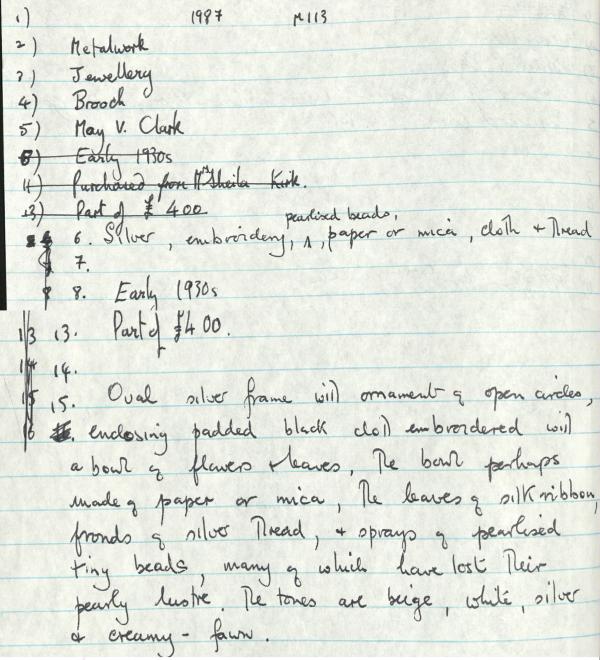 1) 1987 M113
2) Metalwork
3) Jewellery
4) Brooch
5) May V. Clark
8) Early 1930s
11) Purchased from Mrs Sheila Kirk.
13) Part of £400
pearlised beads,
6. Silver, embroidery, ^, paper or mica, cloth + thread
7.
8 8. Early 1930s
13 13. Part of £400.
14 14.
15 15. Oval silver frame with ornament of open circles,
16 enclosing padded black cloth embroidered with
a bowl of flowers + leaves, the bowl perhaps
made of paper or mica, the leaves of silk ribbon,
fronds of silver thread, + sprays of pearlised
tiny beads, many of which have lost their
pearly lustre. The tones are beige, white, silver
& creamy-fawn.